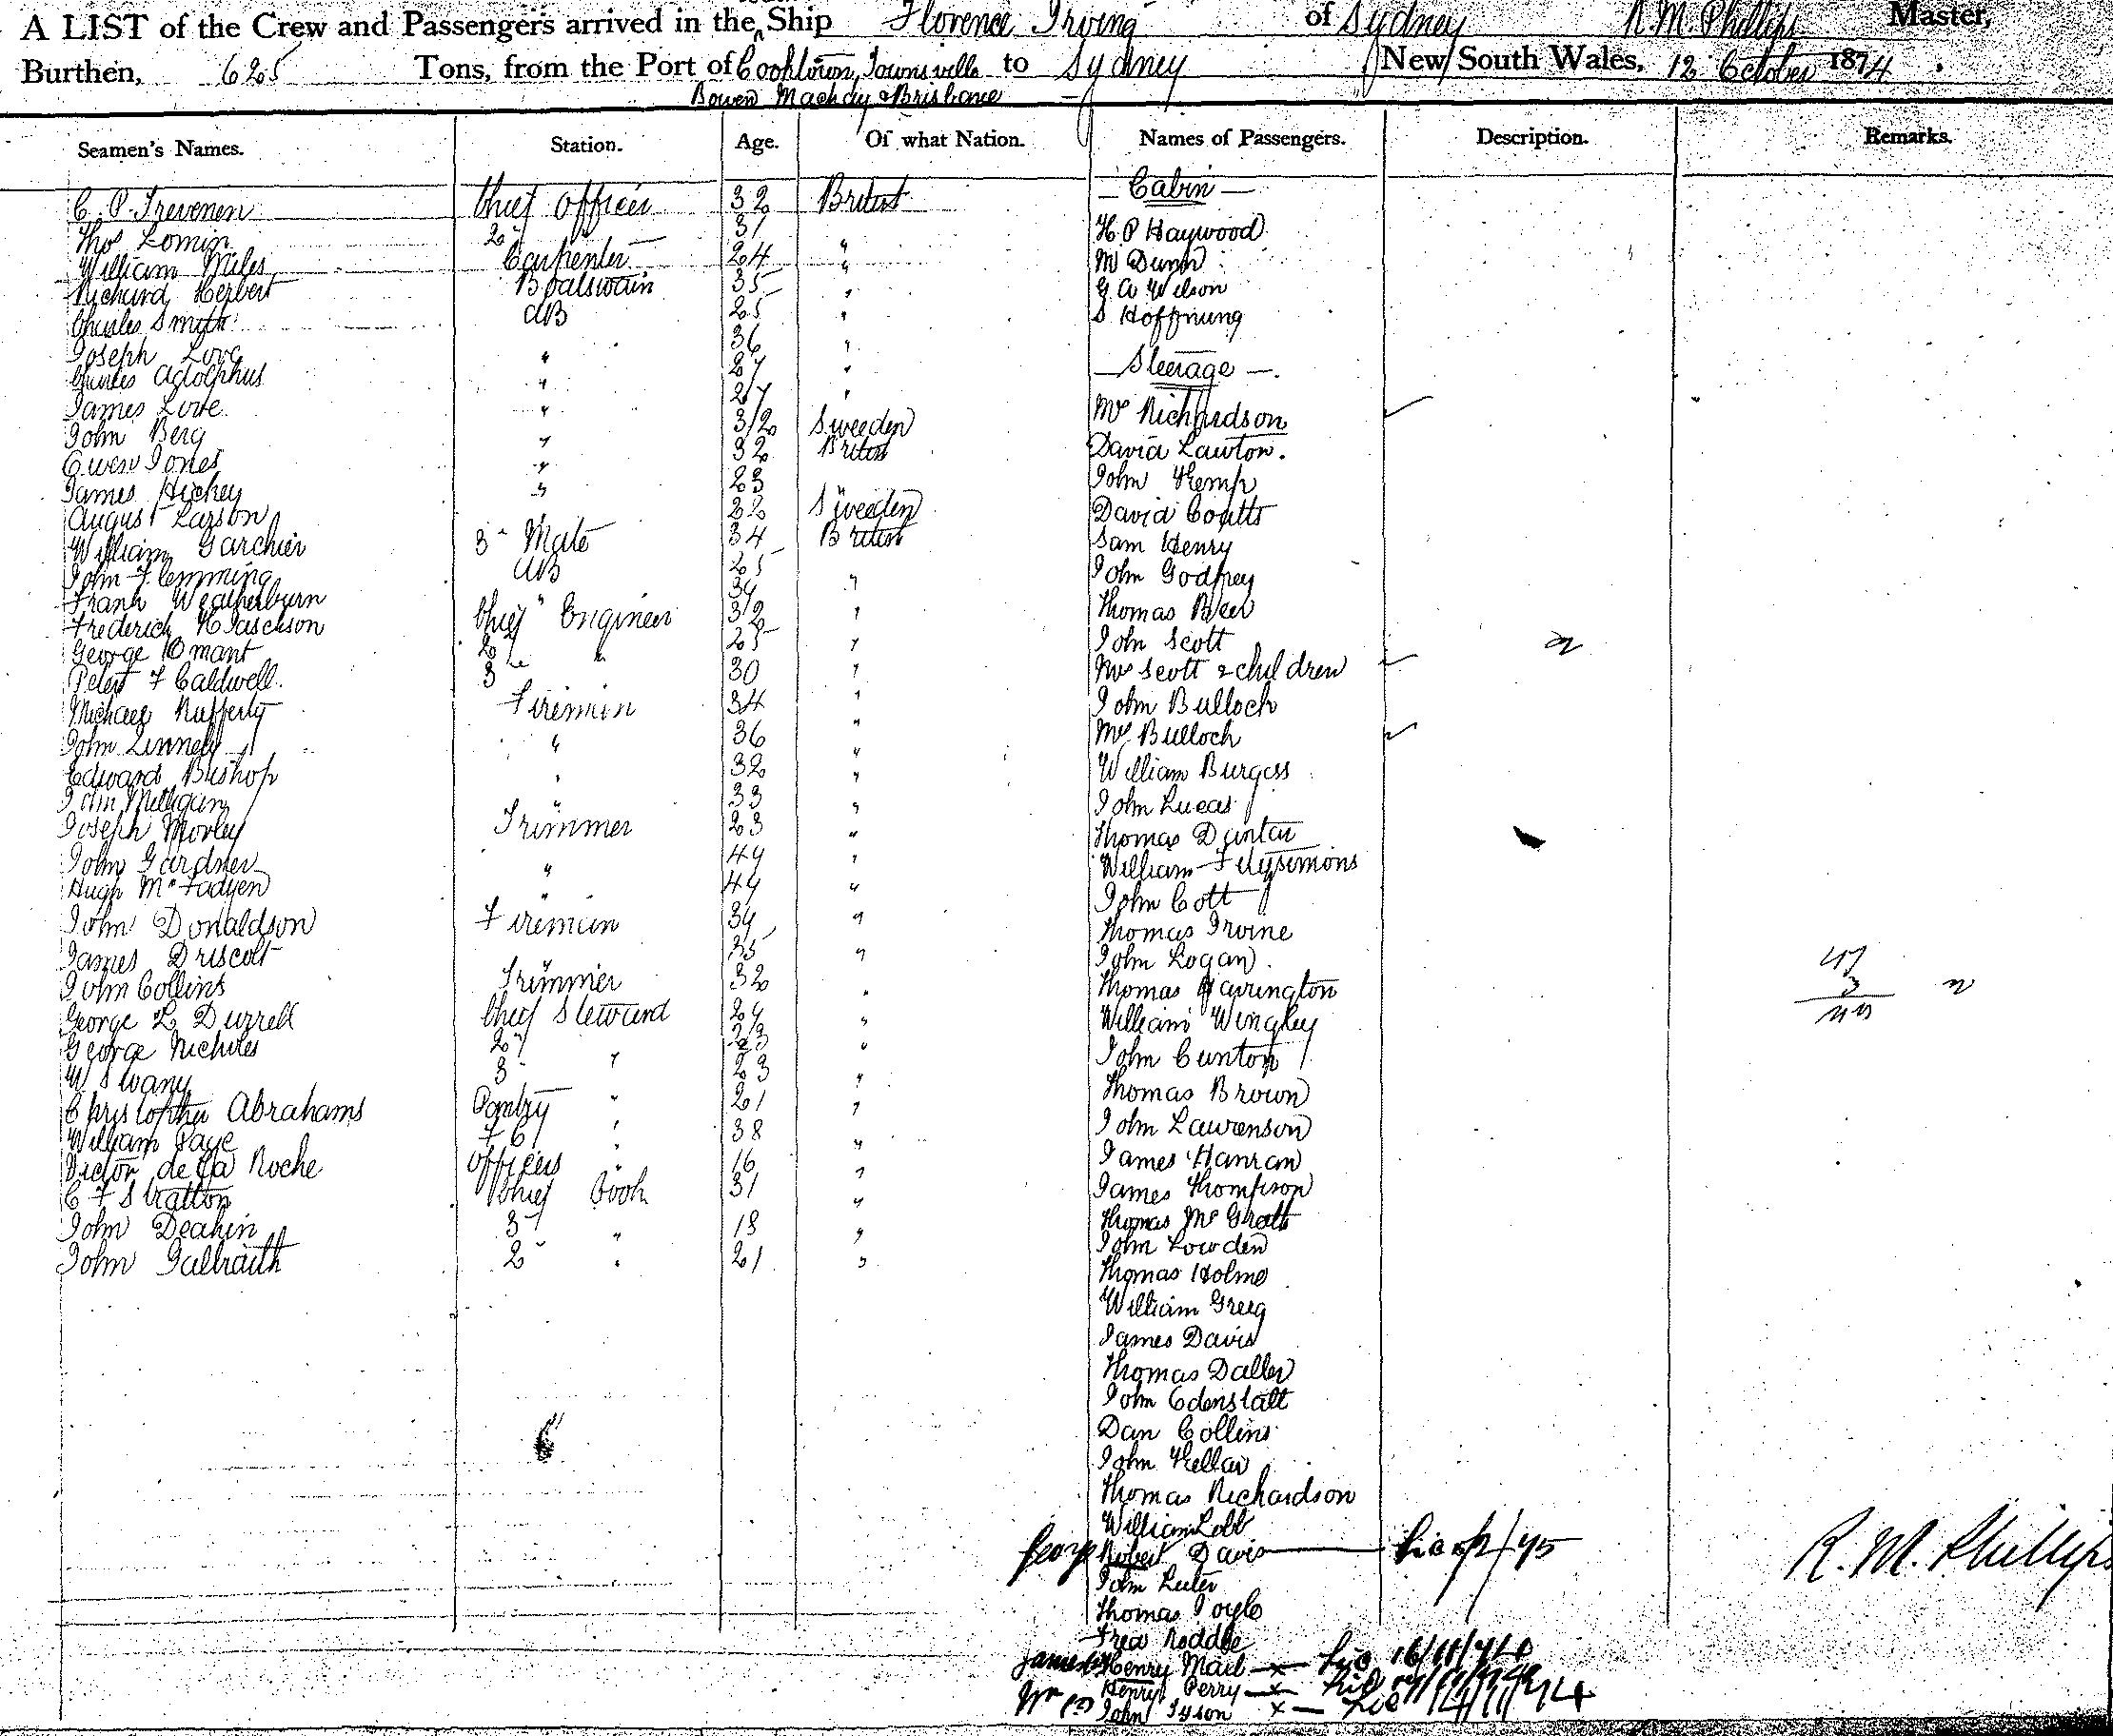 A LIST of the Crew and Passengers arrived in the Ship Florence Irving of Sydney R. M. Phillips Master,
Burthen, 625 Tons, from the Port of Cooktown, Townsville to Sydney New South Wales, 12 October 1874.
Bowen Mackay & Brisbane
Seamen's Names. Station. Age. Of what Nation. Names of Passengers. Description. Remarks.
C. P. Trevenen Chief Officer 32 British — Cabin —
Thos Lomin 2" 31 " H. P Haywood
William Miles Carpenter 24 " M Dunn
Richard Herbert Boatswain 35 " G A Wilson
Charles Smith AB 25 " S Hoffnung
Joseph Love " 36 "
Charles Adolphus " 27 " — Steerage —
James Love " 27 "
John Berg " 32 Sweeden Mrs Richardson
Owen Jones " 32 British David Lawton.
James Hickey " 23 " John Kemp
August Larson " 22 Sweeden David Coutts
William Garchier 3" Mate 34 British Sam Henry
John Flemming AB 25 " John Godfrey
Frank Weatherburn " 34 " Thomas Beer
Frederick H Jackson Chief Engineer 32 " John Scott
George Omant 2 " 25 " Mrs Scott & children
Peter F Caldwell. 3 30 " John Bulloch
Michael Rafferty Firemen 34 " Mrs Bulloch
John Linnely " 36 " William Burgess
Edward Bishop " 32 " John Lucas
John Milligan " 33 " Thomas Duntan
Joseph Morley Trimmer 23 " William Fitzsimons
John Gardner " 44 " John Cott
Hugh McFadyen " 44 " Thomas Irvine
John Donaldson Fireman 34 " John Logan
James Driscoll " 35 " Thomas Harrington
John Collins Trimmer 32 " William Wingley
George L Durrell Chief Steward 24 " John Cunton
George Nicholes 2" 23 " Thomas Brown
W Swany 3" " 23 " John Laurenson
Christopher Abrahams Pantry " 21 " James Hanran
William Page F C " 38 " James Thompson
Victor de la Roche Officers " 16 " Thomas McGrath
C F Stratton Chief Cook 31 " John Lowden
John Deakin 3" " 18 " Thomas Holme
John Galbraith 2" " 21 " William Greig
James Davis
Thomas Daller
John Edenstall
Dan Collins
John Kellar
Thomas Richardson
William Lobb
George Robert Davis
John Luter
Thomas Joyle
Fred Roddle
James Henry Mail x
Henry Perry x
Wm John Tyson x
47
3
R. M. Phillips